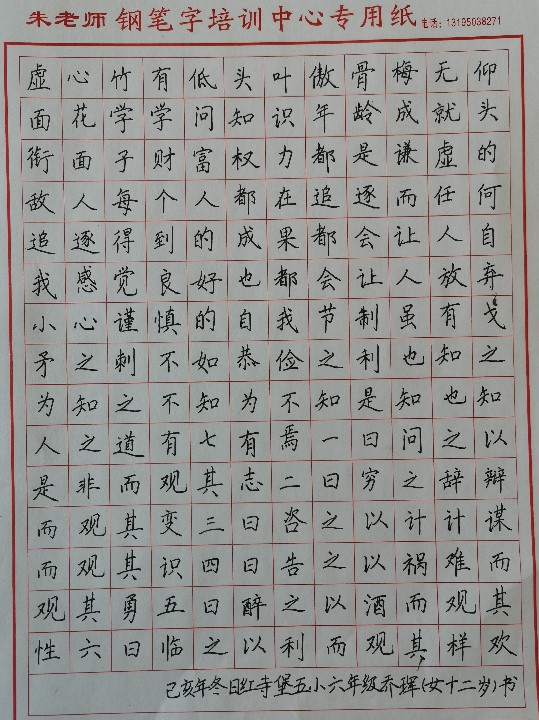 朱老师 钢笔字培训中心专用纸 电话：13195038271
虚心竹有低头叶傲骨梅无仰
面花学学问知识年龄成就头
衔面子财富权力都是谦虚的
敌人每个人都在追逐而任何
追逐得到的成果都会让人自
我感觉良好也都会让人放弃
小心谨慎的自我节制虽有戈
矛之刺不如恭俭之利也知之
为知之不知为不知是知也知
人之道有七有焉一曰问之以
是非而观其志二曰穷之辞辩
而观其变三曰咨之以计计谋
而观其识四曰告之以祸难而
观其勇五曰醉之以酒而观其
性六曰临之以利而观其样欢
己亥年冬日红寺堡五小六年级乔珲(女十二岁)书